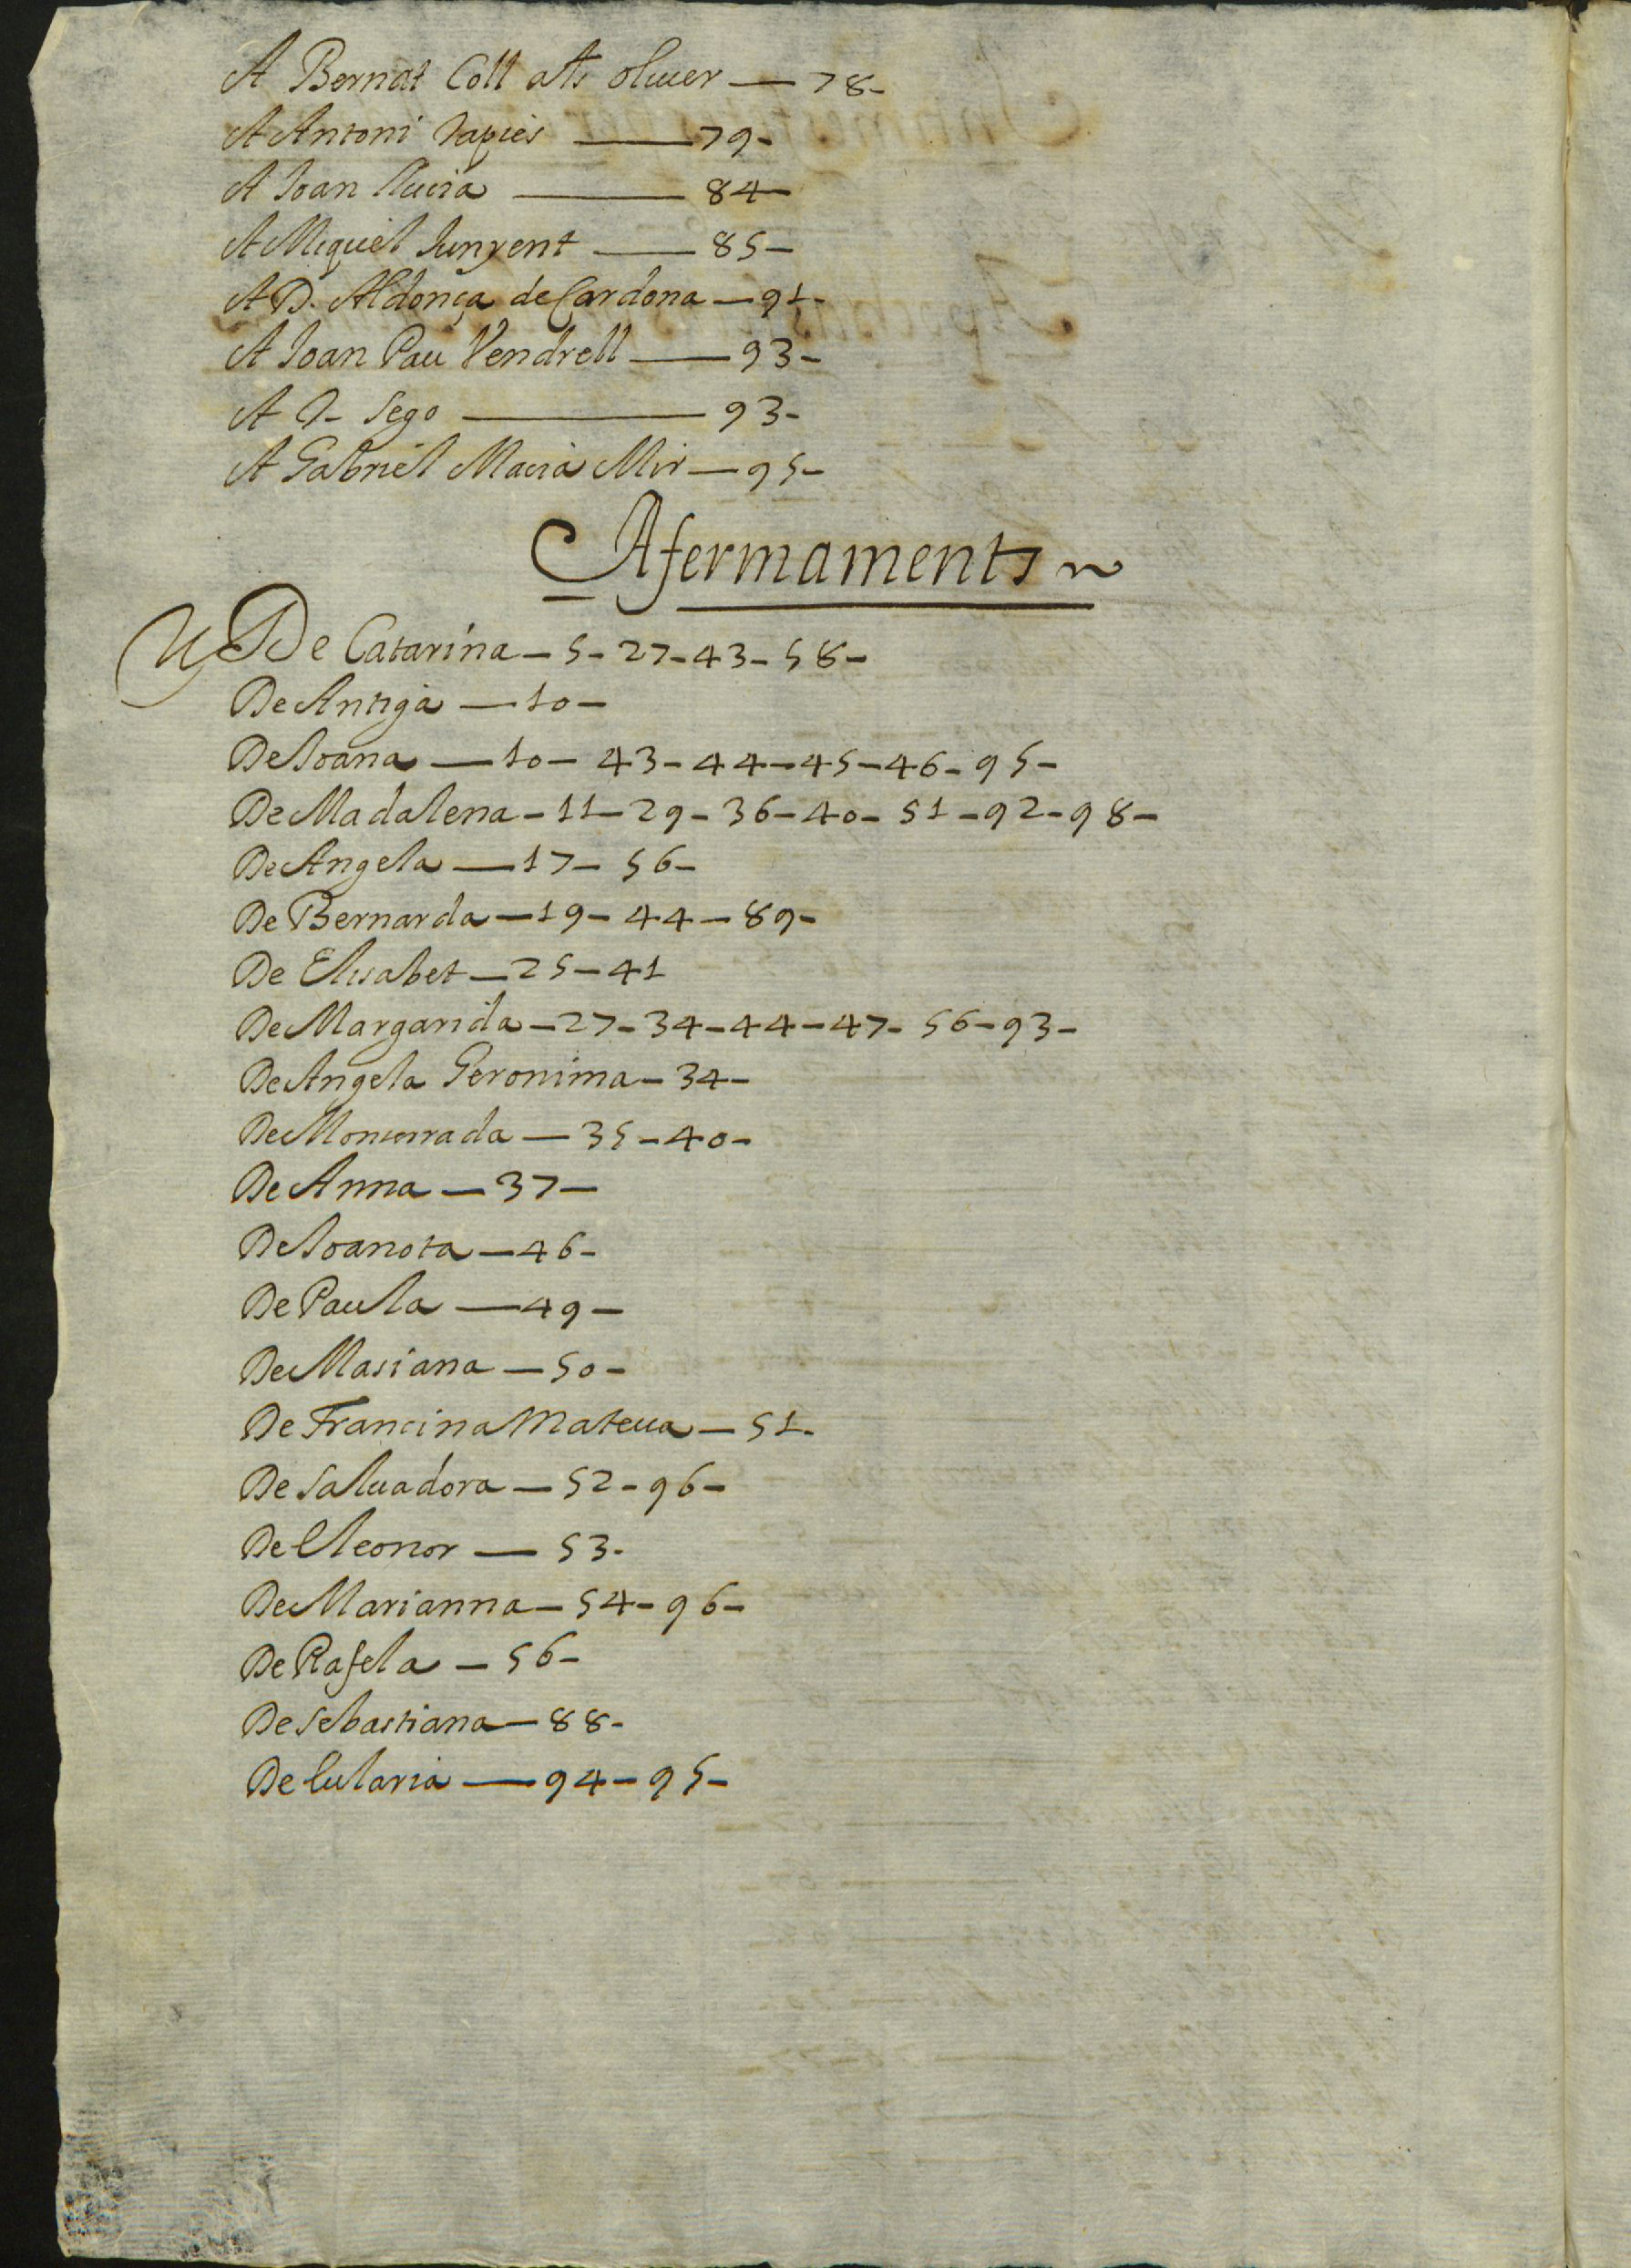 A Bernat Coll als oliuer — 78-
A Antoni Tapies — 79-
A Ioan Llucia — 84-
A Miquel Iunyent — 85-
A D. Aldonça de Cardona — 91-
A Ioan Pau Vendrell — 93-
A Sego — 93-
A Gabriel Macia Mir — 95-
Afermaments
De Catarina - 5 - 27 - 43 - 58 -
De Antiga — 10 -
De Ioana — 10 - 43 - 44 - 45 - 46 - 95 -
De Madalena - 11 - 29 - 36 - 40 - 51 - 92 - 98 -
De Angela — 17 - 56 -
De Bernarda - 19 - 44 - 89 -
De Elisabet - 25 - 41
De Margarida - 27 - 34 - 44 - 47 - 56 - 93 -
De Angela Geronima - 34 -
De Monserrada — 35 - 40 -
De Anna — 37 -
De Ioanota - 46 -
De Paula — 49 -
De Masiana — 50 -
De Francina Mateua — 51 -
De Saluadora — 52 - 96 -
De Lleonor — 53 -
De Marianna - 54 - 96 -
De Rafela - 56 -
De Sebastiana - 88 -
De Eularia — 94 - 95 -